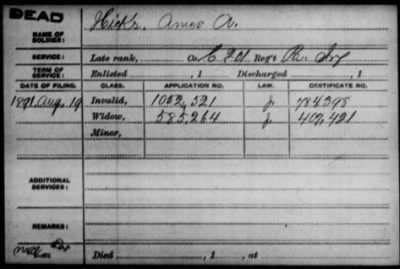 DEAD
NAME OF SOLDIER: Hicks, Amos A.
SERVICE: Late rank, Co. C 201 Reg't Pa. Inf
TERM OF SERVICE: Enlisted , 1 Discharged , 1
DATE OF FILING. CLASS. APPLICATION NO. LAW. CERTIFICATE NO.
1891, Aug. 19 Invalid, 1052,521 J. 784398
Widow, 585,264 J. 407,421
Minor,
ADDITIONAL SERVICES:
REMARKS:
Died , 1 , at